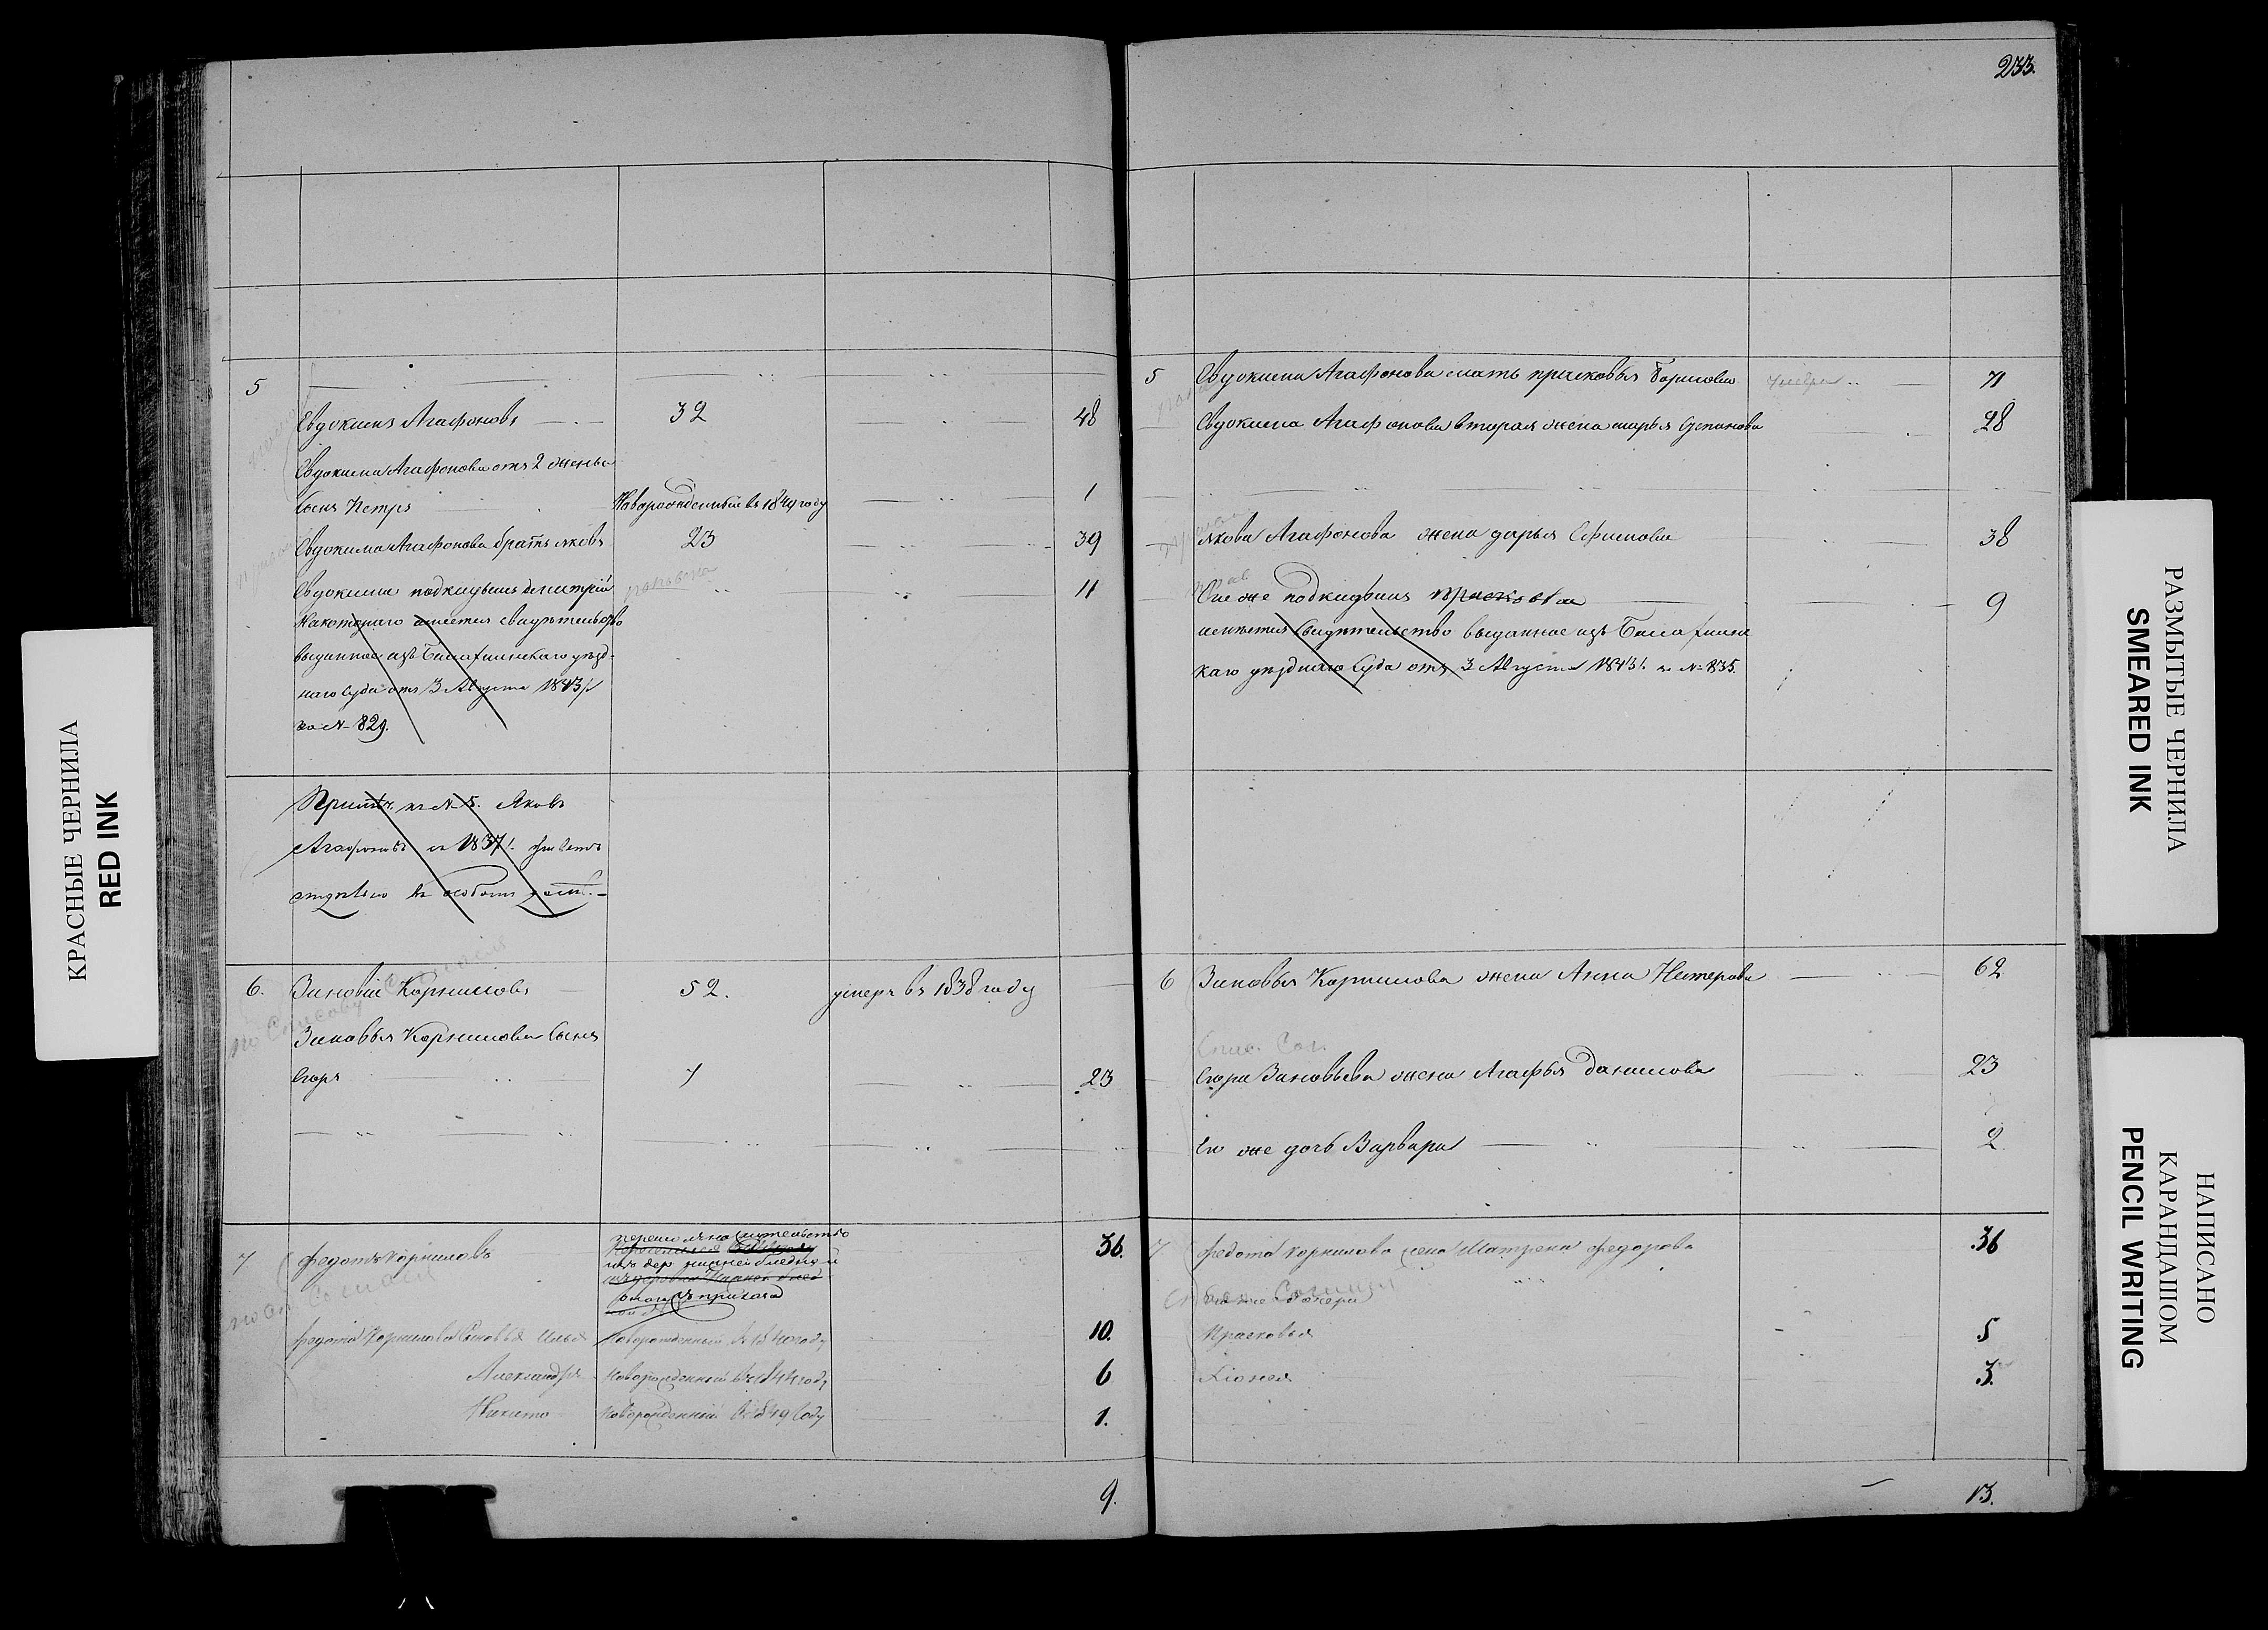 233.
5
Евдокимъ Агафоновъ 32 48
Евдокима Агафонова отъ 2 жены
сынъ Петръ Новорожденный въ 1849 году 1
Евдокима Агафонова братъ яковъ 23 39
Евдокима подкидышъ дмитрій 11
На котораго имеется свидетельство
выданное изъ уезд-
наго Суда отъ 3 Августа 1843
за № 829.
Примеч. къ № 5. Яковъ
Агафоновъ съ 1837 г. живетъ
отдельно въ особомъ
6. Зиновій Корниловъ 52. умеръ въ 1838 году
Зиновья Корнилова Сынъ
Егоръ 7 23
7 федотъ Корниловъ 36.
изъ дер нижней
федота Корнилова Сыновья Илья Новорожденный въ 1840 году 10.
Александръ Новорожденный въ 1844 году 6
Никита Новорожденный въ 1849 Году 1.
9.
5 Евдокима Агафонова мать прасковья борисова умерла 71
Евдокима Агафонова вторая жена марья Степанова 28
якова Агафонова жена дарья Ефимова 38
подкидышъ 9
имеется Свидетельство выданное изъ
каго уезднаго Суда отъ 3 Августа 1843 г. за № 835.
6 Зиновья Корнилова жена Анна 62
Егора Зиновьева жена Агафья данилова 23
Его же дочь Варвара 2
7 федота корнилова жена Матрена федорова 36
его же дочери
Прасковья 5
3.
13.
КРАСНЫЕ ЧЕРНИЛА
RED INK
РАЗМЫТЫЕ ЧЕРНИЛА
SMEARED INK
НАПИСАНО
КАРАНДАШОМ
PENCIL WRITING